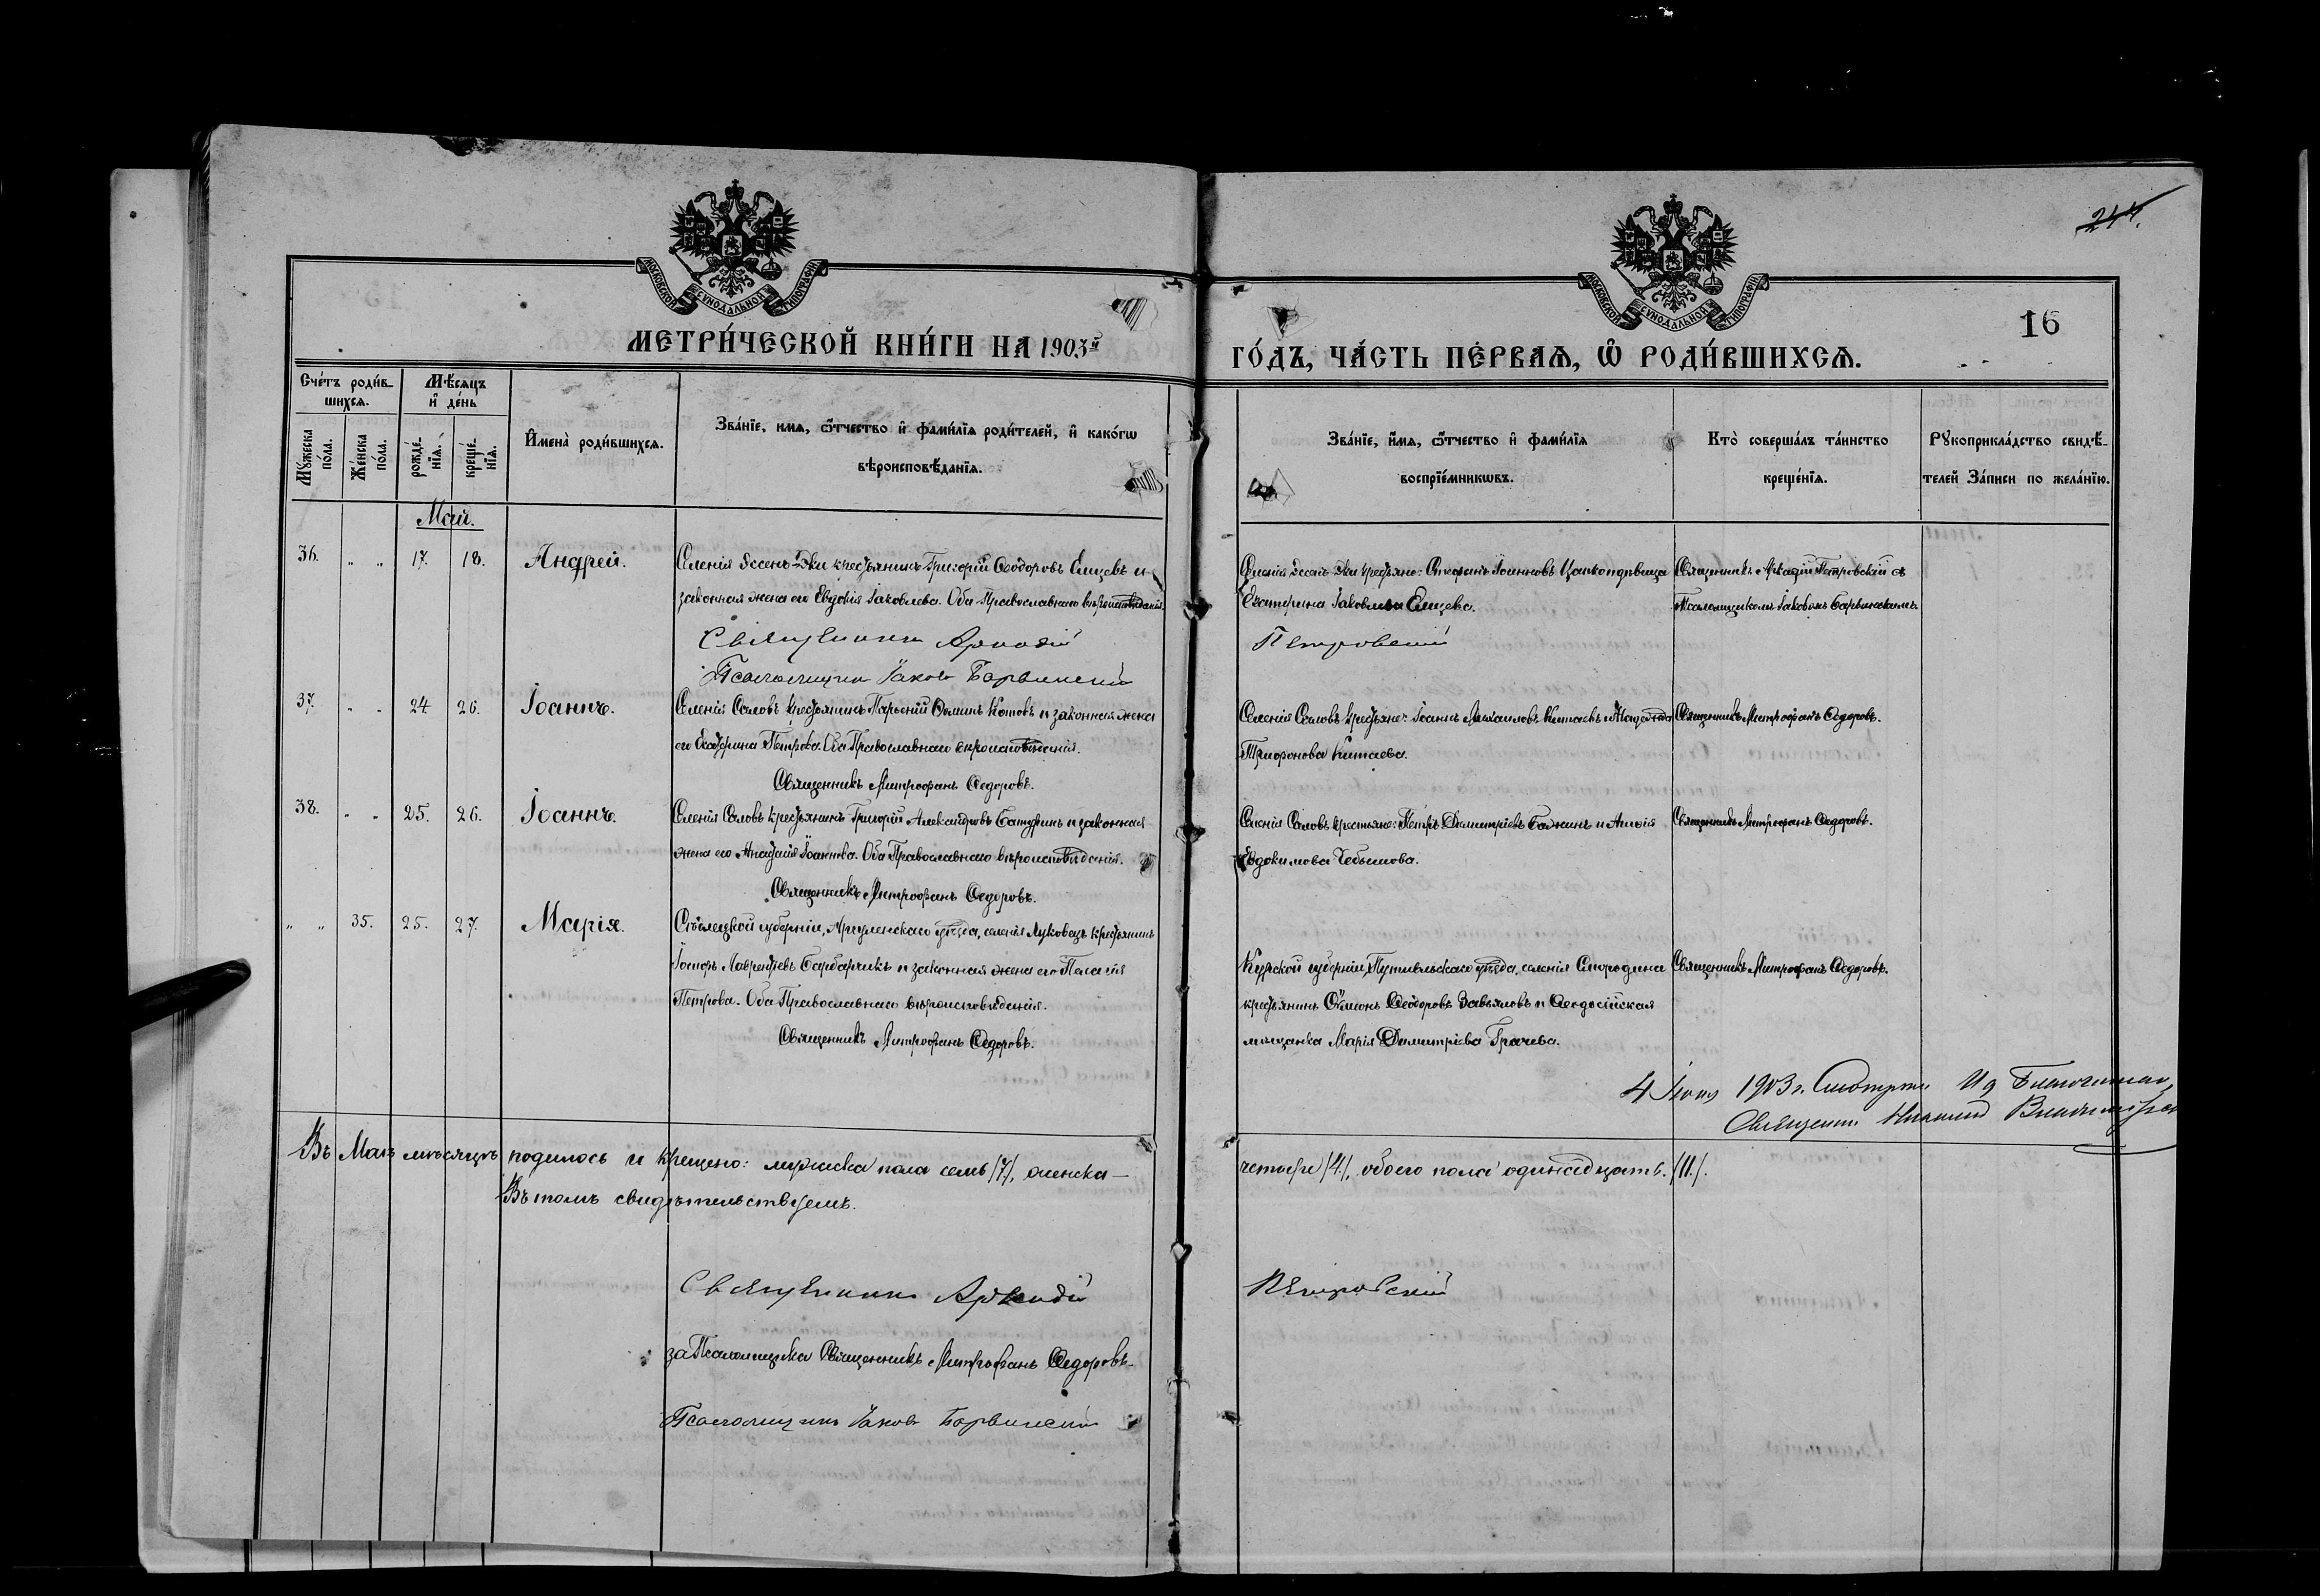 244.
МОСКОВСКОЙ СѴНОДАЛЬНОЙ ТИПОГРАФІИ
МОСКОВСКОЙ СѴНОДАЛЬНОЙ ТИПОГРАФІИ
16
МЕТРИ́ЧЕСКОЙ КНИ́ГИ НА 1903й
ГО́ДЪ, ЧА́СТЬ ПЕ́РВАѦ, Ѡ РОДИ́ВШИХСѦ.
Сче́тъ роди́в-
шихсѧ.
Мꙋ́жеска по́ла.
Же́нска по́ла.
Мѣ́сѧцъ и де́нь
рожде́-нїѧ.
креще́-нїѧ.
Имена̀ роди́вшихсѧ.
Зва́нїе, имѧ, ѿтчество и фами́лїѧ роди́телей, и како́гѡ
вѣроисповѣ́данїѧ.
Зва́нїе, и́мѧ, ѿтчество и фами́лїѧ
воспрїе́мникѡвъ.
Кто̀ соверша́лъ та́инство
креще́нїѧ.
Рꙋкоприкла́дство свидѣ́-
телей За́писи по жела́нїю.
Май.
36. " " 17. 18. Андрей.
Селенія Ессенъ-Эки крестьянинъ Григорій Ѳеодоровъ Елисевъ и
законная жена его Евдокія Іаковлева. Оба Православнаго вѣроисповѣданія.
Священникъ Аркадій
Псаломщикъ Іаковъ Барвинскій
Селенія Ессенъ-Эки крестьяне: Стефанъ Іоанновъ
Екатерина Іаковлева
Петровскій
Священникъ Аркадій Петровскій съ
Псаломщикомъ Іаковомъ Барвинскимъ.
37. " " 24. 26. Іоаннъ.
Селенія Саловъ крестьянинъ Парѳеній Ѳоминъ Котовъ и законная жена
его Екатерина Петрова. Оба Православнаго вѣроисповѣданія.
Священникъ Митрофанъ Ѳедоровъ.
Селенія Саловъ крестьяне: Іоаннъ Михаиловъ Китаевъ и
Трифонова Китаева.
Священникъ Митрофанъ Ѳедоровъ.
38. " " 25. 26. Іоаннъ.
Селенія Саловъ крестьянинъ Григорій Александровъ Батуринъ и законная
жена его Анастасія Іоаннова. Оба Православнаго вѣроисповѣданія.
Священникъ Митрофанъ Ѳедоровъ.
Селенія Саловъ крестьяне: Петръ Димитріевъ и
Евдокимова
Священникъ Митрофанъ Ѳедоровъ.
" " 35. 25. 27. Марія.
губерніи, уѣзда, селенія Луковецъ крестьянинъ
Лаврентіевъ и законная жена его Пелагія
Петрова. Оба Православнаго вѣроисповѣданія.
Священникъ Митрофанъ Ѳедоровъ.
Курской губерніи, Путивльскаго уѣзда, селенія Смородина
крестьянинъ Симеонъ Ѳеодоровъ Завьяловъ и Ѳеодосійская
мѣщанка Марія Димитріева Грачева.
Священникъ Митрофанъ Ѳедоровъ.
4 Іюня 1903 г. Смотрѣлъ И д Благочиннаго
Священникъ
Въ Маѣ мѣсяцѣ родилось и крещено: мужеска пола семь /7/, женска —
четыре /4/, обоего пола одинадцать. /11/.
Въ томъ свидѣтельствуемъ.
Священникъ Аркадій
Петровскій
за Псаломщика Священникъ Митрофанъ Ѳедоровъ.
Псаломщикъ Іаковъ Барвинскій